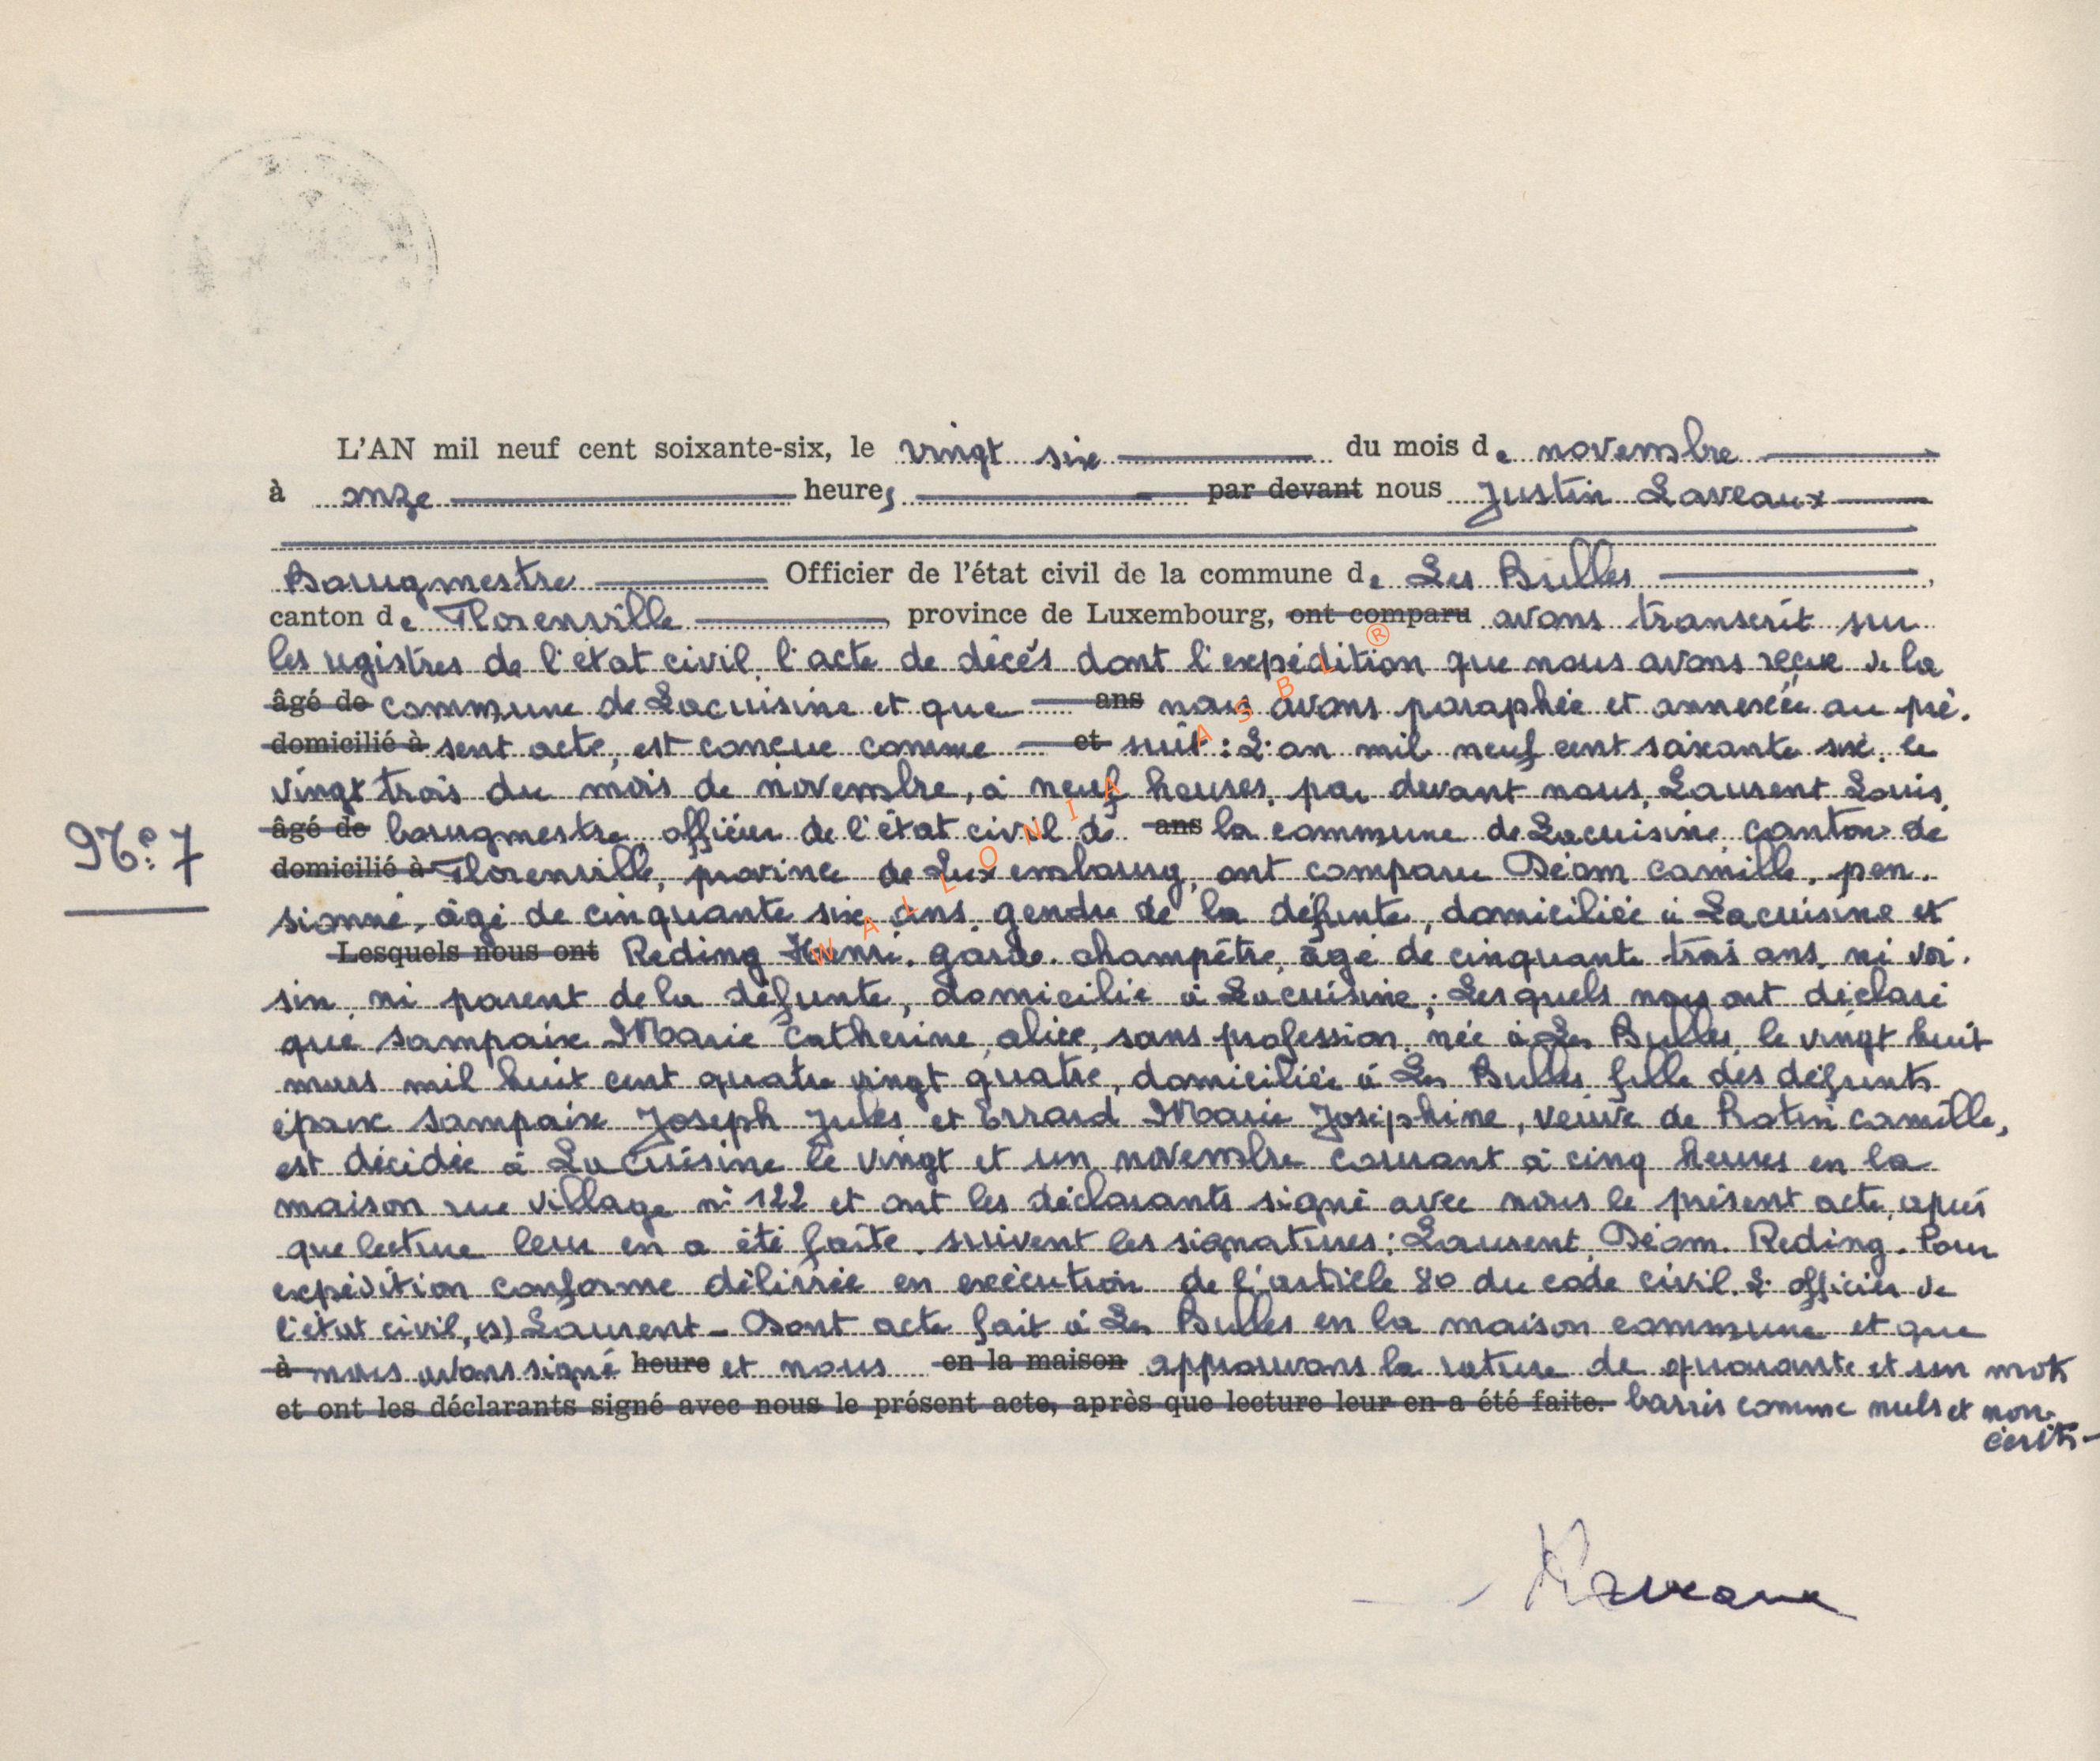 L'AN mil neuf cent soixante-six, le vingt six du mois de novembre
à onze heures par devant nous Justin Laveaux
Bourgmestre Officier de l'état civil de la commune de Les Bulles,
canton de Florenville, province de Luxembourg, ont comparu avons transcrit sur
les registres de l'état civil, l'acte de décés dont l'expédition que nous avons reçue de la
âgé de commune de Lacuisine et que ans nous avons paraphée et annexée au pré.
domicilié à sent acte, est conçue comme et suit: L'an mil neuf cent soixante six, le
vingt trois du mois de novembre, à neuf heures, par devant nous, Laurent Louis,
âgé de bourgmestre, officier de l'état civil de ans la commune de Lacuisine, canton de
N° 7
domicilié à Florenville, province de Luxembourg, ont comparu Déom Camille, pen.
sionné, âgé de cinquante six ans, gendre de la défunte, domiciliée à Lacuisine et
Lesquels nous ont Reding Henri, garde-champêtre, âgé de cinquante trois ans, ni voi.
sin, ni parent de la défunte, domicilié à Lacuisine; Lesquels nous ont déclaré
que Sampaix Marie Catherine, alice, sans profession, née à Les Bulles, le vingt huit
mars mil huit cent quatre vingt quatre, domiciliée à Les Bulles fille des défunts
époux Sampaix Joseph Jules et Errard Marie Joséphine, veuve de Rotin Camille,
est décédée à Lacuisine le vingt et un novembre courant à cinq heures en la
maison rue Village n° 122 et ont les déclarants signé avec nous le présent acte, après
que lecture leur en a été faite. suivent les signatures: Laurent, Déom. Reding. Pour
expédition conforme délivrée en exécution de l'article 80 du code civil. L'officier de
l'état civil, (s) Laurent - Dont acte fait à Les Bulles en la maison commune et que
à nous avons signé heure et nous en la maison approuvons la rature de quarante et un mots
et ont les déclarants signé avec nous le présent acte, après que lecture leur en a été faite. barrés comme nuls et non
écrits -
Laveaux
WALLONIA ASBL ®